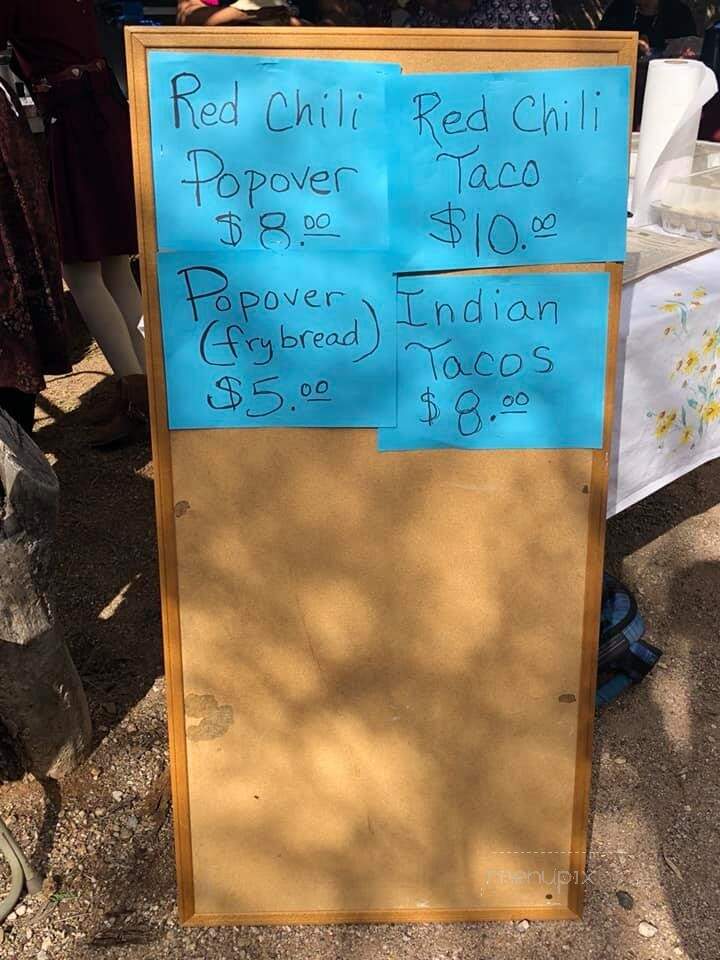 Red Chili
Popover
$8.00
Red Chili
Taco
$10.00
Popover
(frybread)
$5.00
Indian
Tacos
$8.00
menupix